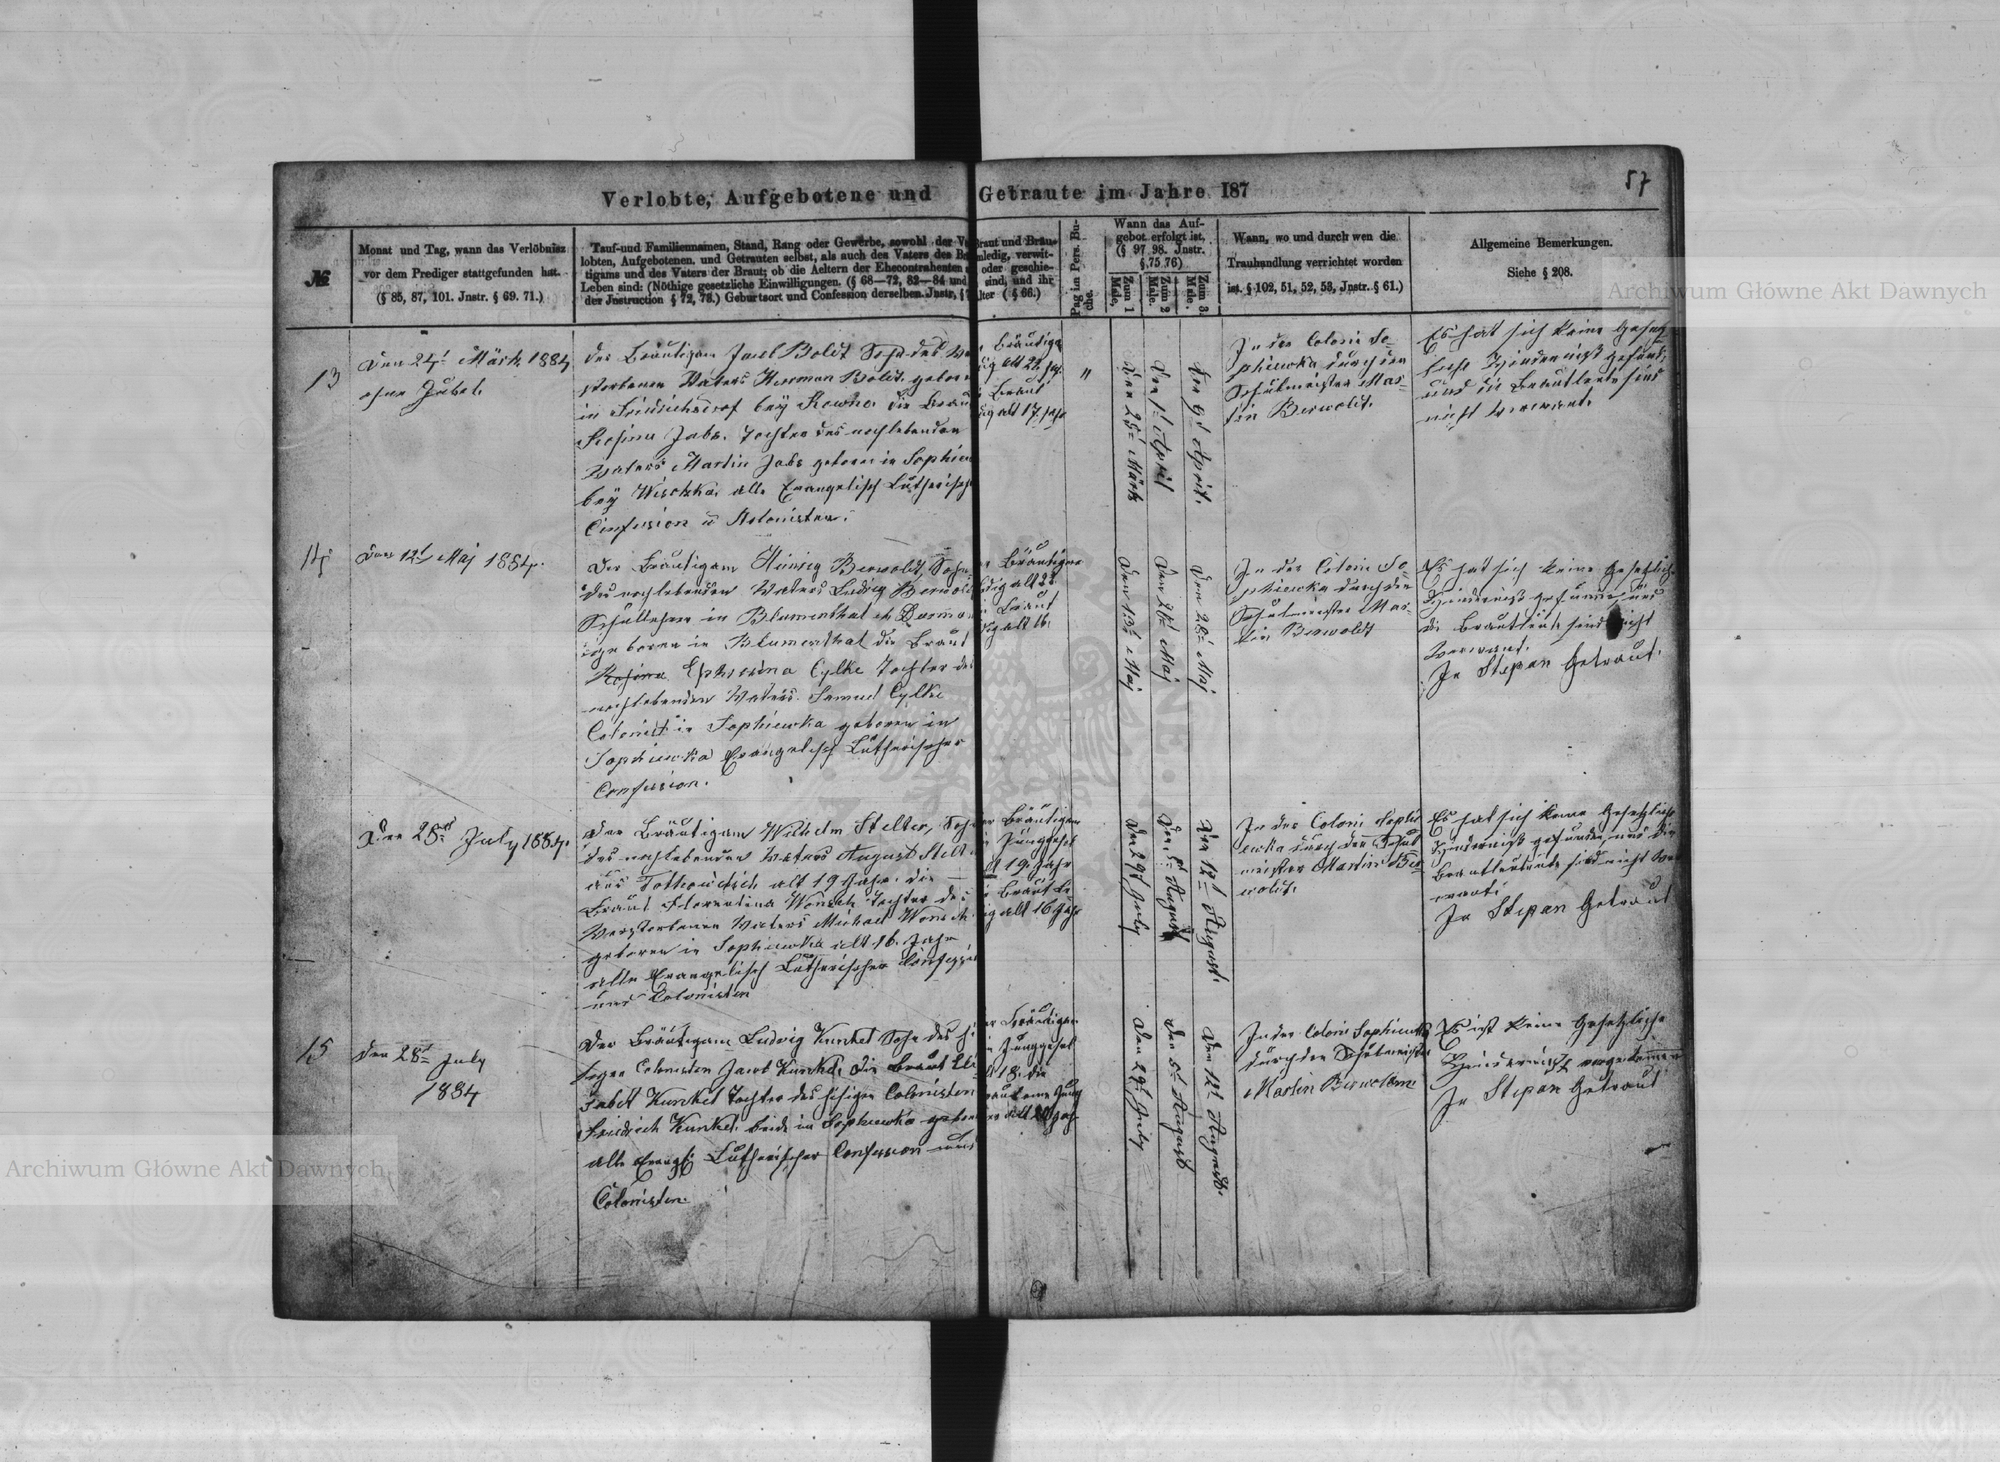 Verlobte, Aufgebotene und Getraute im Jahre 187
57
№
Monat und Tag, wann das Verlöbniss
vor dem Prediger stattgefunden hat.
(§ 85, 87, 101. Jnstr. § 69. 71.)
Tauf-und Familiennamen, Stand, Rang oder Gewerbe, sowohl der Ve
lobten, Aufgebotenen, und Getrauten selbst, als auch des Vaters des Br
tigams und des Vaters der Braut; ob die Aeltern der Ehecontrahenten
Leben sind: (Nöthige gesetzliche Einwilligungen. (§ 68—72, 82—84 und
der Jnstruction § 72, 78.) Geburtsort und Confession derselben. Jnstr. §
raut und Bräu-
ledig, verwit-
oder geschie-
sind, und ihr
lter ( § 66.)
Pag im Pers. Bu-
che.
Wann das Auf-
gebot erfolgt ist,
(§ 97 98. Jnstr.
§.75 76)
Zum 1
Male.
Zum 2
Male.
Zum 3.
Male.
Wann, wo und durch wen die
Trauhandlung verrichtet worden
ist. § 102, 51, 52, 53, Jnstr. § 61.)
Allgemeine Bemerkungen.
Siehe § 208.
13
Den 24t März 1884
Der Bräutigam Boldt Sohn des
storbenen Vaters Herrman Boldt gebor
in bey Rowno die Brau
Rosina Jabs. Tochter des nochlebenden
Vaters Martin Jabs geboren in Sophiew
bey alle Evangelisch Lutherisch
Confession u
Bräutiga
alt 22
Braut
alt 17 Jahr
"
Den 25t März
Den 1t April
Den 9t April.
In der Coloni So-
phiewka durch den
Schulmeister Mar-
tin Berwoldt.
Es hat sich keine Gesetz
liche Hinderniß gefund,
und die Brautleute sind
nicht verwant.
14
Den 12t Maj 1884.
Der Bräutigam Heinrig Berwoldt, Sohn
des nochlebenden Vaters Ludwig Berwold
Schullehrer in Blumenthal
geboren in Blumenthal die Braut
Rosina Ephrosina Cylke Tochter des
nochlebenden Vaters Samuel Cylke
Colonist in Sophiewka geboren in
Sophiewka Evangelisch Lutherischer
Confession.
Bräutigam
ledig alt 22
Braut
alt 16.
Den 13t Maj
Den 20t Maj
Den 28t Maj
In der Coloni So-
phiewka durch den
Schulmeister Mar-
tin Berwoldt
Es hat sich keine Gesetzlich
Hinderniß gefunden, und
die Brautleute sind nicht
verwant.
In Stepan Getraut.
Den 28ten July 1884.
Der Bräutigam Wilhelm Stelter, Sohn
des nochlebenden Vaters August Stelt
aus alt 19 Jahr. die
Braut Florentina Wonsch Tochter des
Verstorbenen Vaters Michael Wonsch
geboren in Sophiewka alt 16. Jahr
alle Evangelisch Lutherischer Confessi
und Colonisten
Bräutigam
Junggesel
19 Jahr
Braut le
dig alt 16 Jahr
Den 29t July
Den 5t August
Den 12t August.
In der Coloni Sophi
ewka durch den Schul
meister Martin Ber
woldt.
Es hat sich keine Gesetzliche
Hinderniß gefunden, und die
Brautleute sind nicht ver
want.
In Stepan Getraut
15
Den 28t July
1884
Der Bräutigam Ludwig Kunkel Sohn des hi
sigen Colonisten Jacob Kunkel, die Braut Eli
sabet Kunkel Tochter des hisigen Colonisten
Friedrich Kunkel. beide in Sophiewka gebor
alle Evangl: Lutherischer Confession und
Colonisten.
Bräutigam
Junggesel
18. die
Braut eine Jung
fer alt 20 Jahr
Den 29t July
Den 5t August
Den 12t August.
In der Coloni Sophiewka
durch den Schulmeister
Martin Berwoldt
Es ist keine Gesetzliche
Hinderniße vorgekommen
In Stepan Getraut
Archiwum Główne Akt Dawnych
Archiwum Główne Akt Dawnych